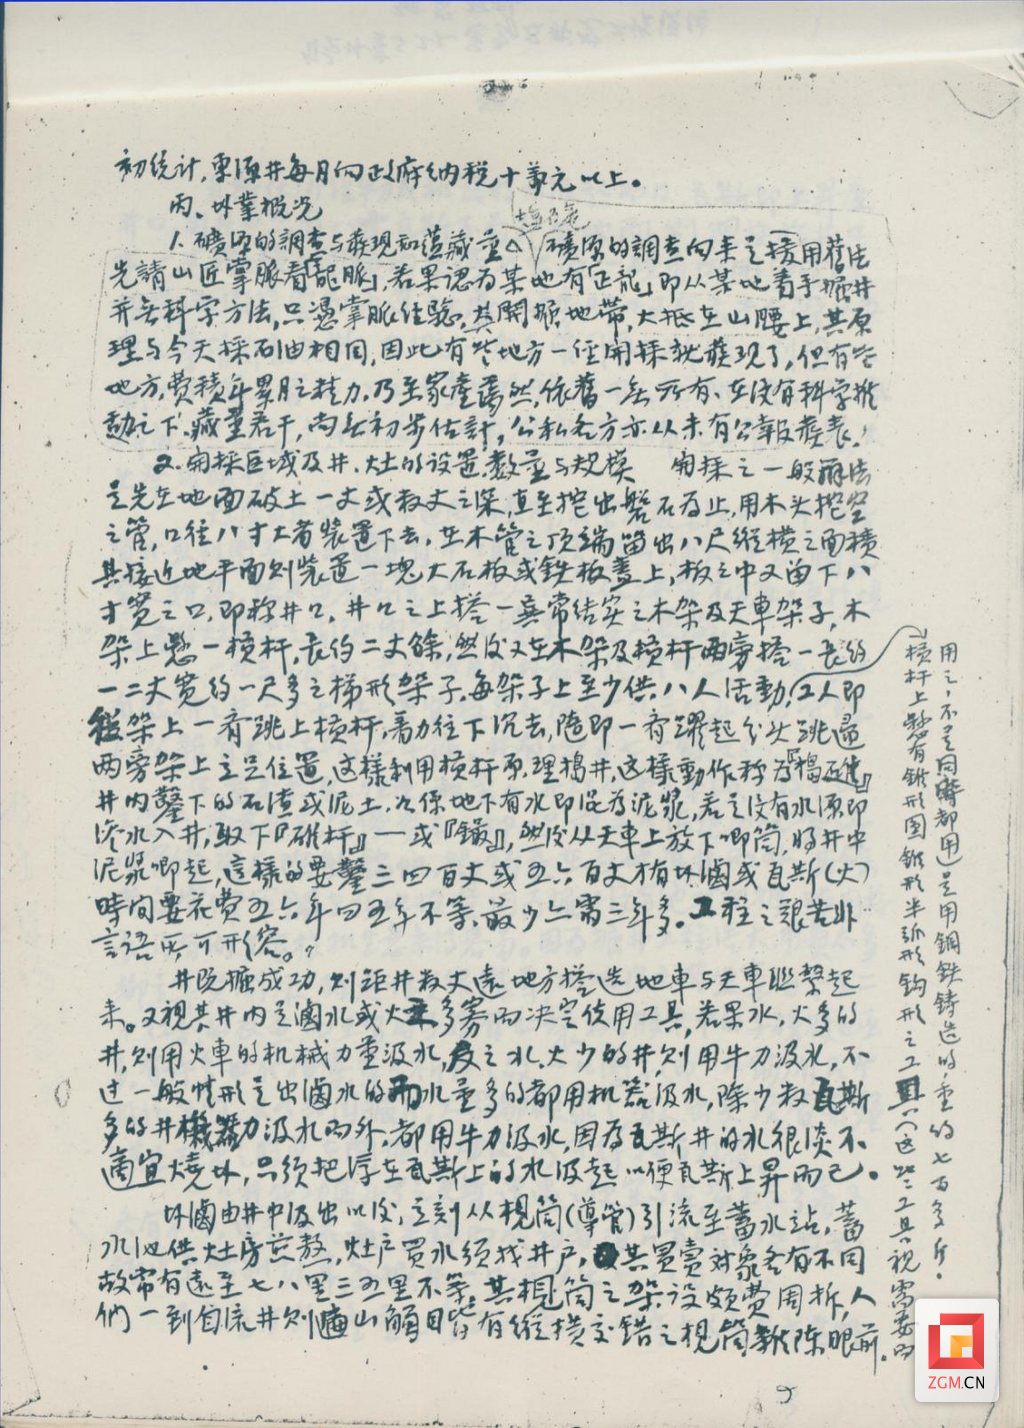 初统计，東源井每月向政府纳税十萬元以上。
丙、坏業概况
1. 礦源的調查与發現和蕴藏量 礦源的調查向来是援用舊法
先請山匠掌脈看「龍脈」，若果認为某地有「正龍」即从某地着手掘井
并无科学方法，只憑掌脈经驗，其開掘地带，大抵在山腰上，其原
理与今天採石油相同，因此有些地方一经開採就發現了，但有些
地方，費積年累月之精力，乃至家產蕩然，依舊一无所有、在没有科学推
動之下，藏量若干，尚无初步估計，公私各方亦从未有公報發表。
2. 開採区域及井、灶的设置，数量与規模 開採之一般辦法
是先在地面破土一丈或数丈之深，直至挖出磐石为止，用木头挖空
之管，口径八寸大者装置下去，在木管之顶端留出八尺縱横之面積
其接近地平面则装置一塊大石板或鉄板蓋上，板之中又留下八
寸宽之口，即称井口，井口之上搭一異常结实之木架及天車架子，木
架上懸一横杆，長约二丈餘，然後又在木架及横杆两旁搭一長约
一二丈宽约一尺多之梯形架子，每架子上至少供八人活動，工人即
從架上一齊跳上横杆，着力往下沉去，随即一齊躍起分头跳過
两旁架上立足位置，这樣利用横杆原理捣井，这樣動作称为『捣碓』
井内鑿下的石渣或泥土，如係地下有水即混为泥漿，若是没有水源即
渗水入井，取下『碓杆』——或『銼』，然後从天車上放下唧筒，将井中
泥漿唧起，這樣的要鑿三四百丈或五六百丈才有坏滷或瓦斯(火)
時间要花費五六年四五年不等，最少亦需三年多。工程之艰苦非
言語所可形容。
井既掘成功，则距井数丈遠地方搭造地車与天車联繫起
来。又視其井内是滷水或火多寡而决定使用工具，若果水，火多的
井，则用火車的机械力量汲水，反之水、火少的井，则用牛力汲水，不
过一般情形是出滷水的而水量多的都用机器汲水，除少数瓦斯
多的井機器力汲水而外，都用牛力汲水，因为瓦斯井的水很淡不
適宜燒坏，只须把浮在瓦斯上的水汲起以便瓦斯上昇而已。
坏滷由井中汲出以後，立刻从梘筒(導管)引流至蓄水站，蓄
水池供灶房煎熬，灶户買水须找井户，其買賣对象各有不同
故常有遠至七八里三五里不等，其梘筒之架设颇費周折，人
們一到自流井则滿山觸目皆有縱横交錯之梘筒雜陈眼前。
横杆上懸有錐形圆錐形半弧形钩形之工具(这些工具視需要而
用之，不是同時都用)是用鋼鉄铸造的，重约七百多斤。
9
ZGM.CN